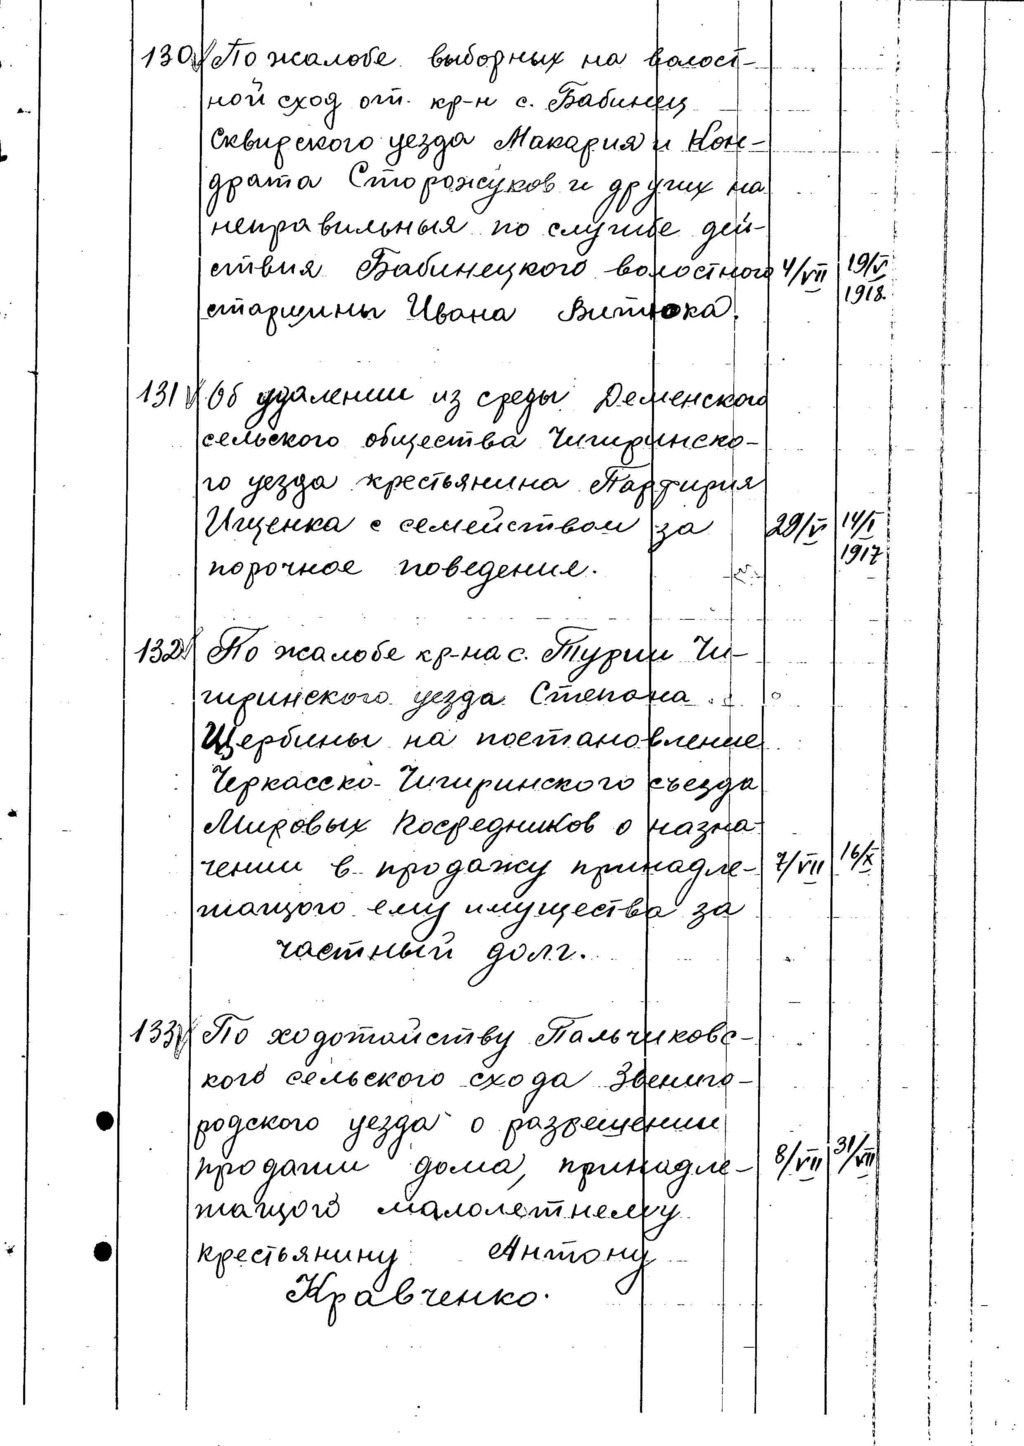 130 По жалобе выборных на волост-
ной сход от кр-н с. Бабинец
Сквирского уезда Макария и Кон-
драта Сторожуков и других на
неправильныя по службе дей-
ствия Бабинецкого волостного 4/VII 19/V
старшины Ивана Витюка. 1918.
131 Об удалении из среды Деменского
сельского общества Чигиринско-
го уезда крестьянина Парфирия
Ищенка с семейством за 29/V 14/I
порочное поведение. 1917
132 По жалобе кр-на с. Турии Чи-
гиринского уезда Степана
Щербины на постановление
Черкасско-Чигиринского съезда
Мировых Посредников о назна-
чении в продажу принадле- 7/VII 16/X
жащого ему имущества за
частный долг.
133 По ходотайству Пальчиковс-
кого сельского схода Звениго-
родского уезда о разрешении
продажи дома, принадле- 8/VII 31/VII
жащого малолетнему
крестьянину Антону
Кравченко.